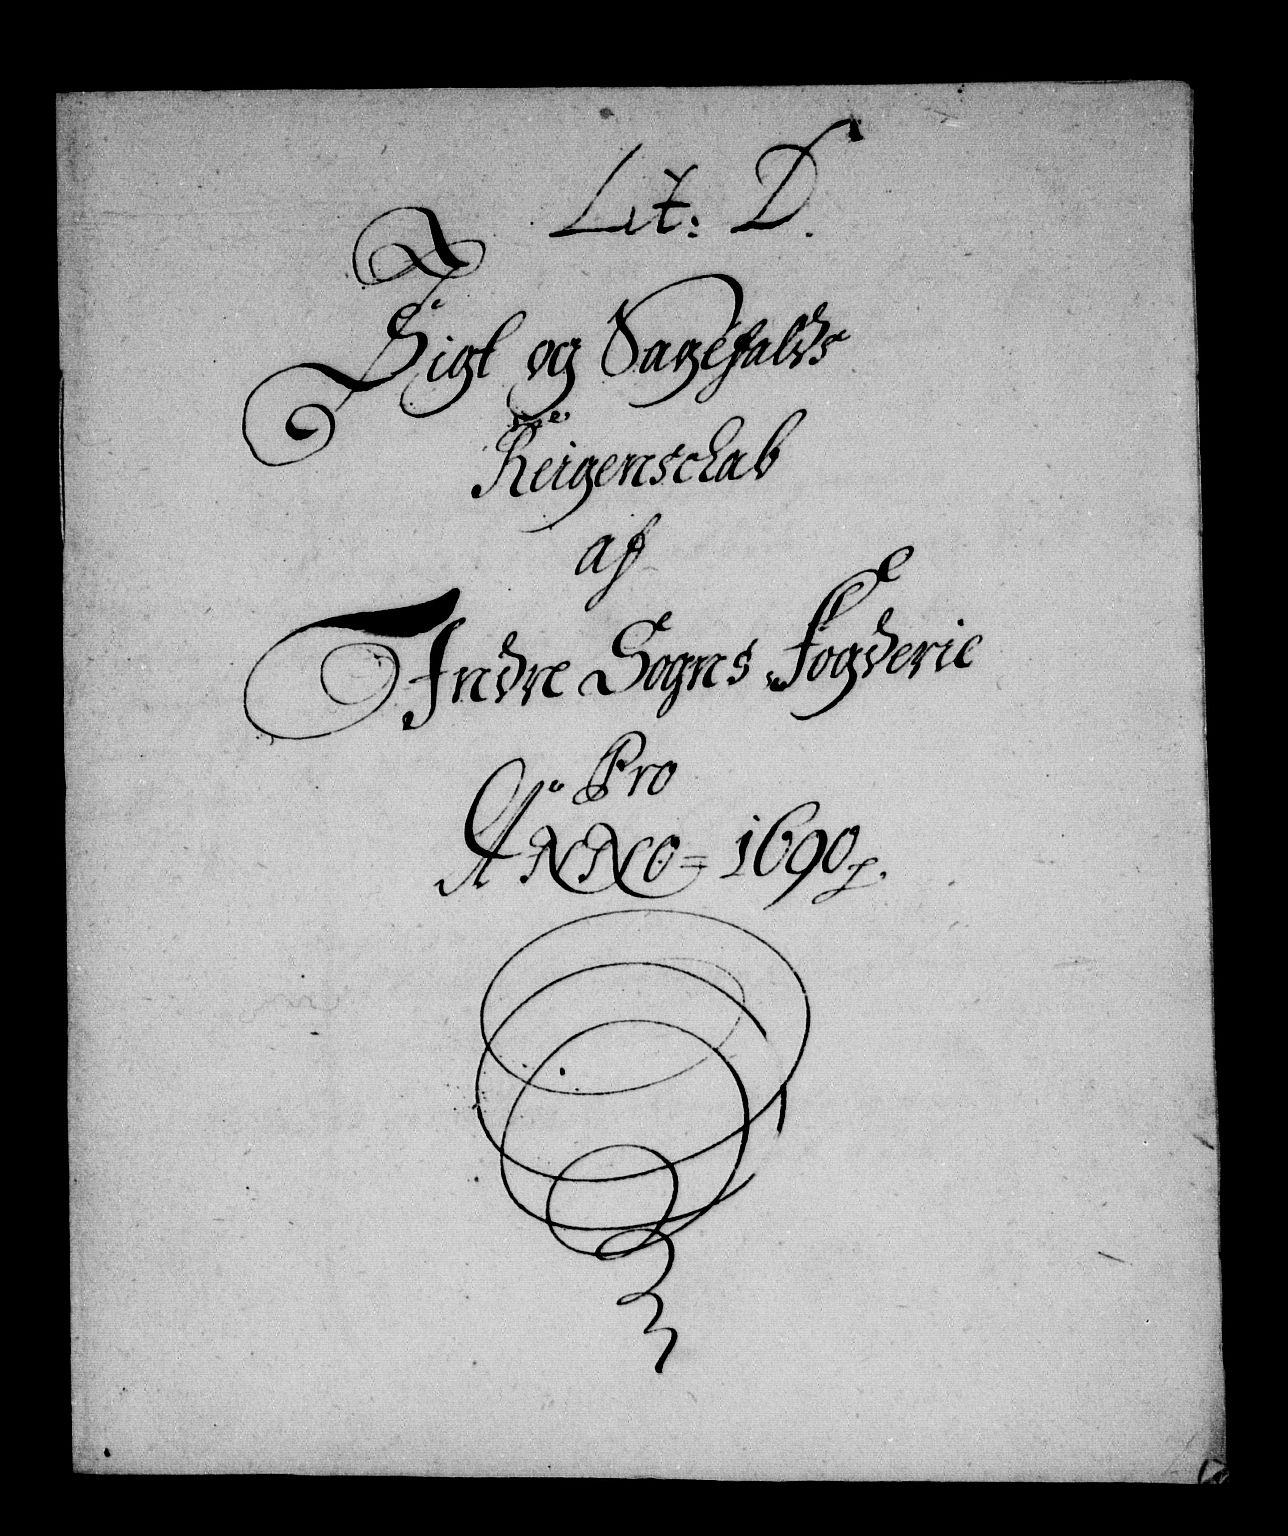 Lit: D.
Sigt og Sagefalds
Reigenschab
af
Indre Sogns Fogderie
Pro
ANNO = 1690